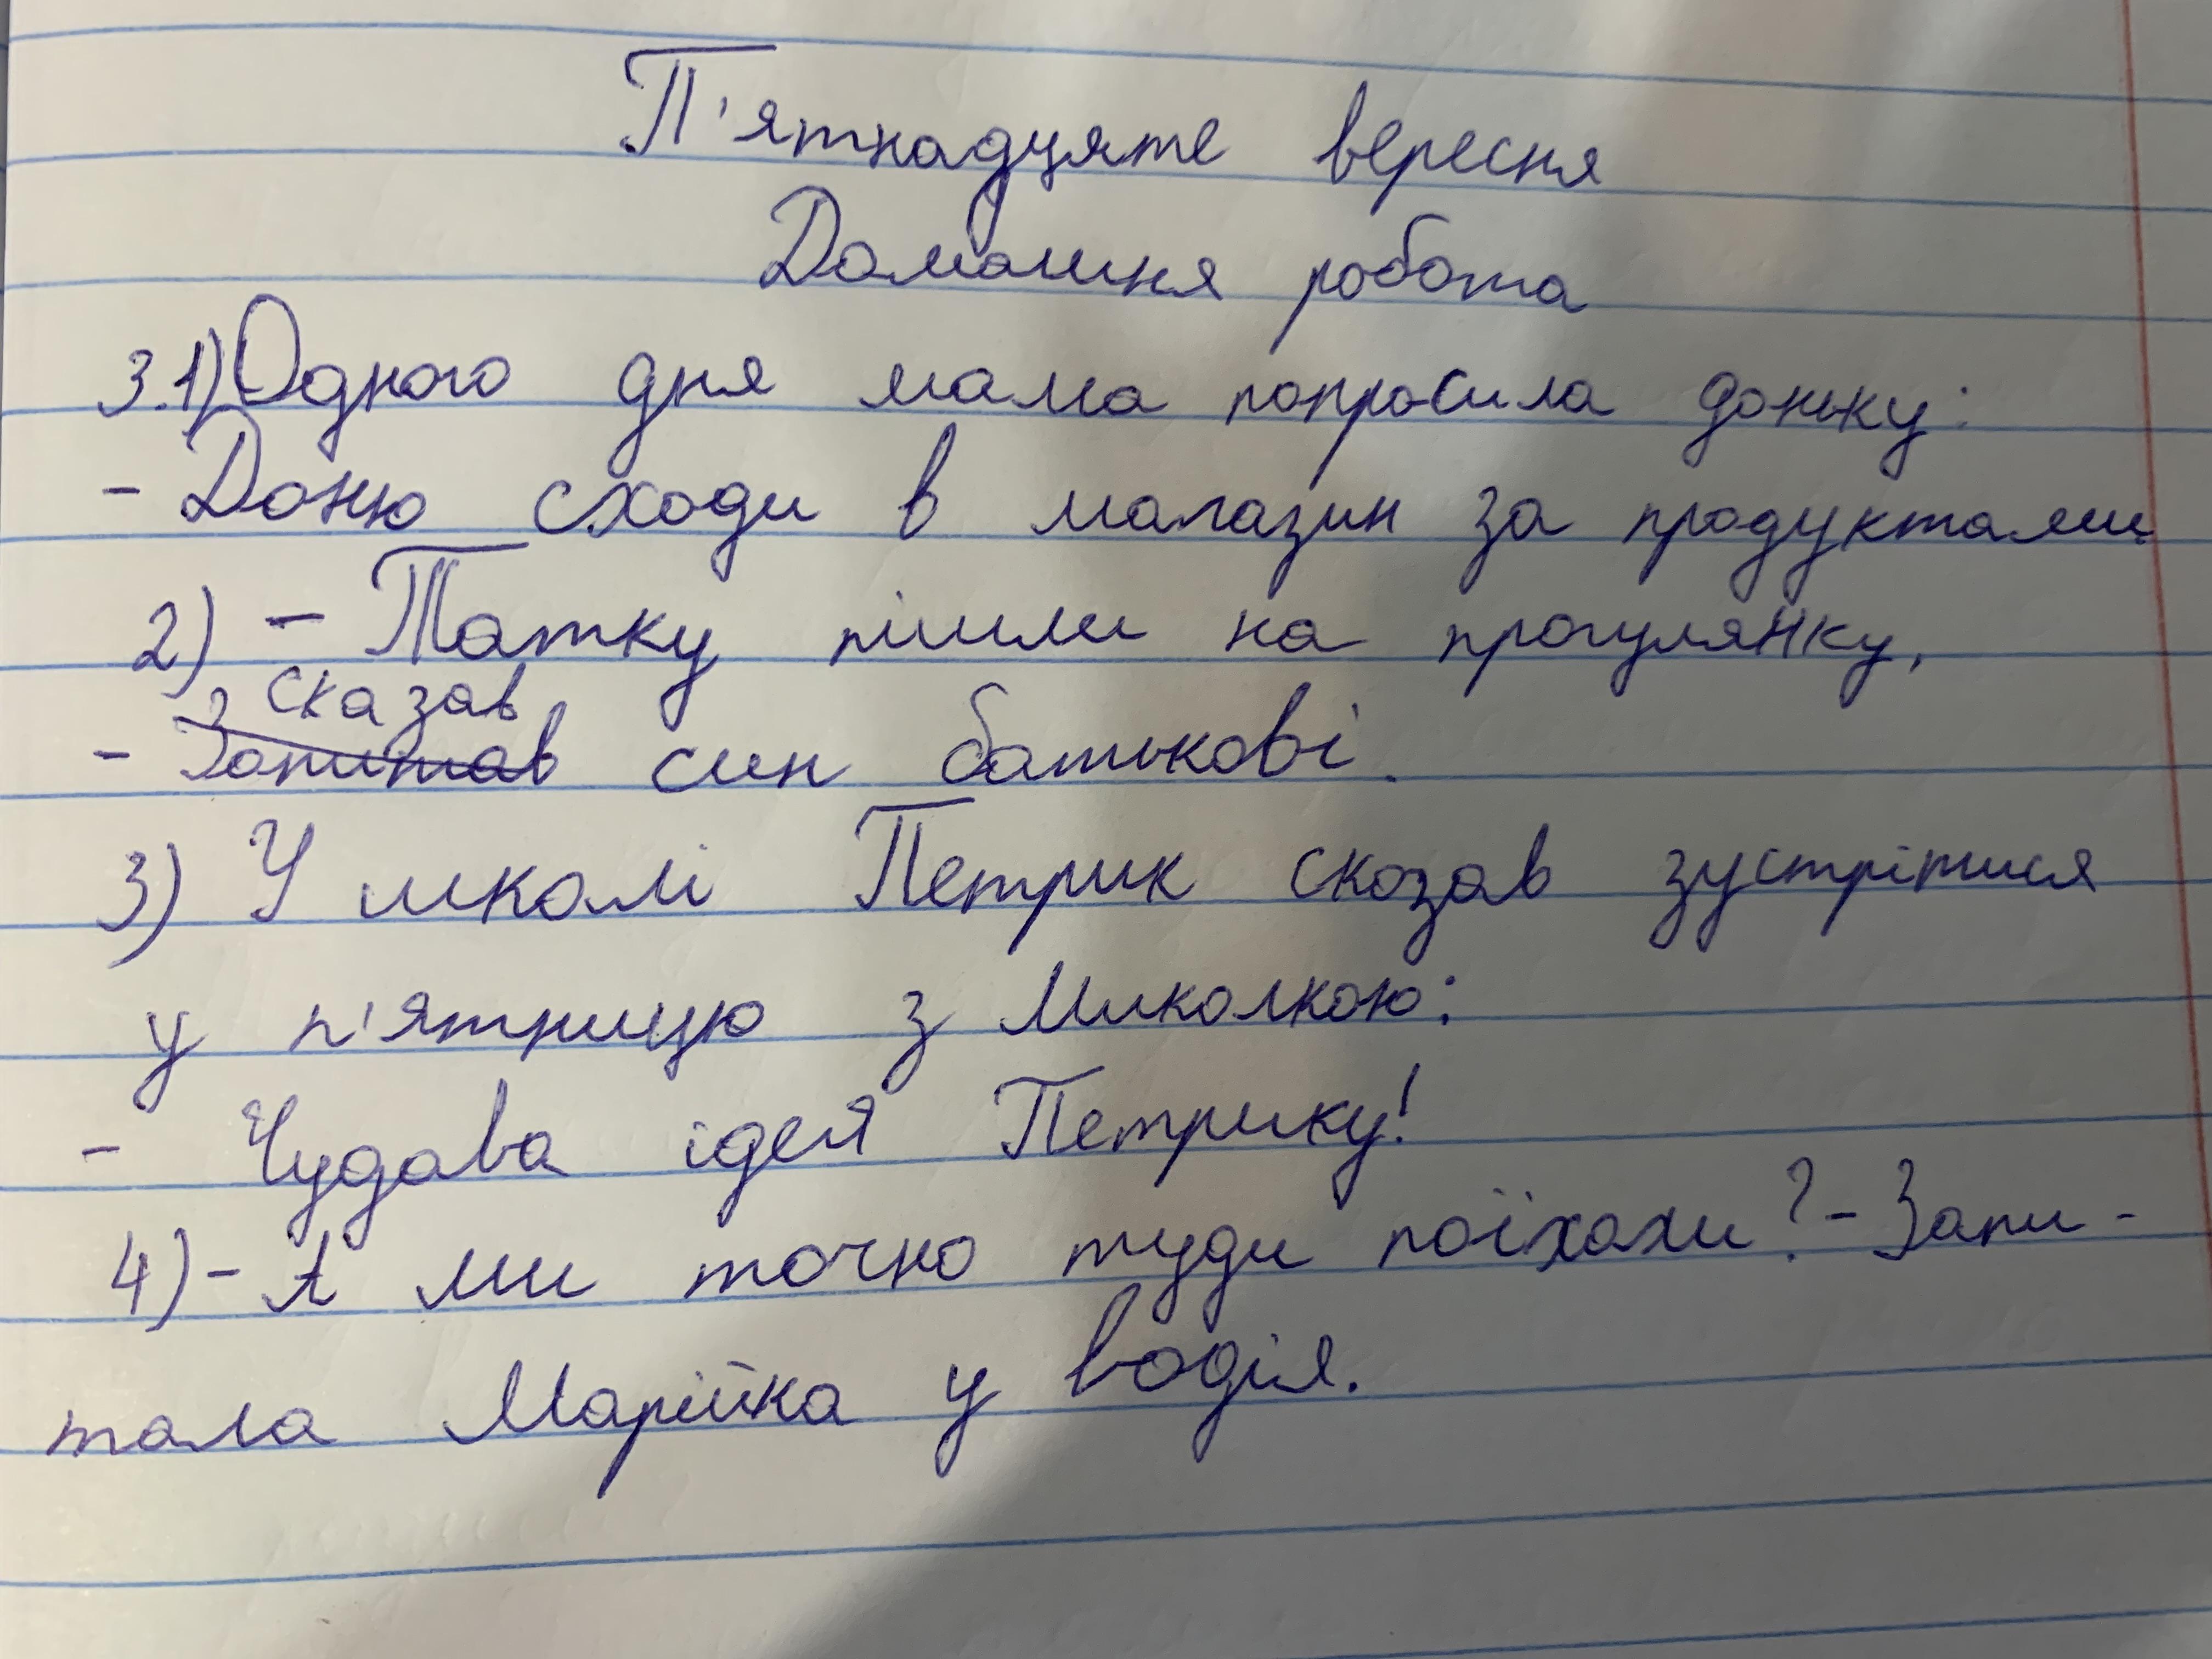 П'ятнадцяте вересня
Домашня робота
3.1) Одного дня мама попросила доньку:
- Доню сходи в магазин за продуктами
2) - Татку пішли на прогулянку,
сказав
- Запитав син батькові.
3) У школі Петрик сказав зустрітися
у п'ятницю з Миколкою:
- Чудова ідея Петрику!
4) - А ми точно туди поїхали? - Запи-
тала Марійка у водія.